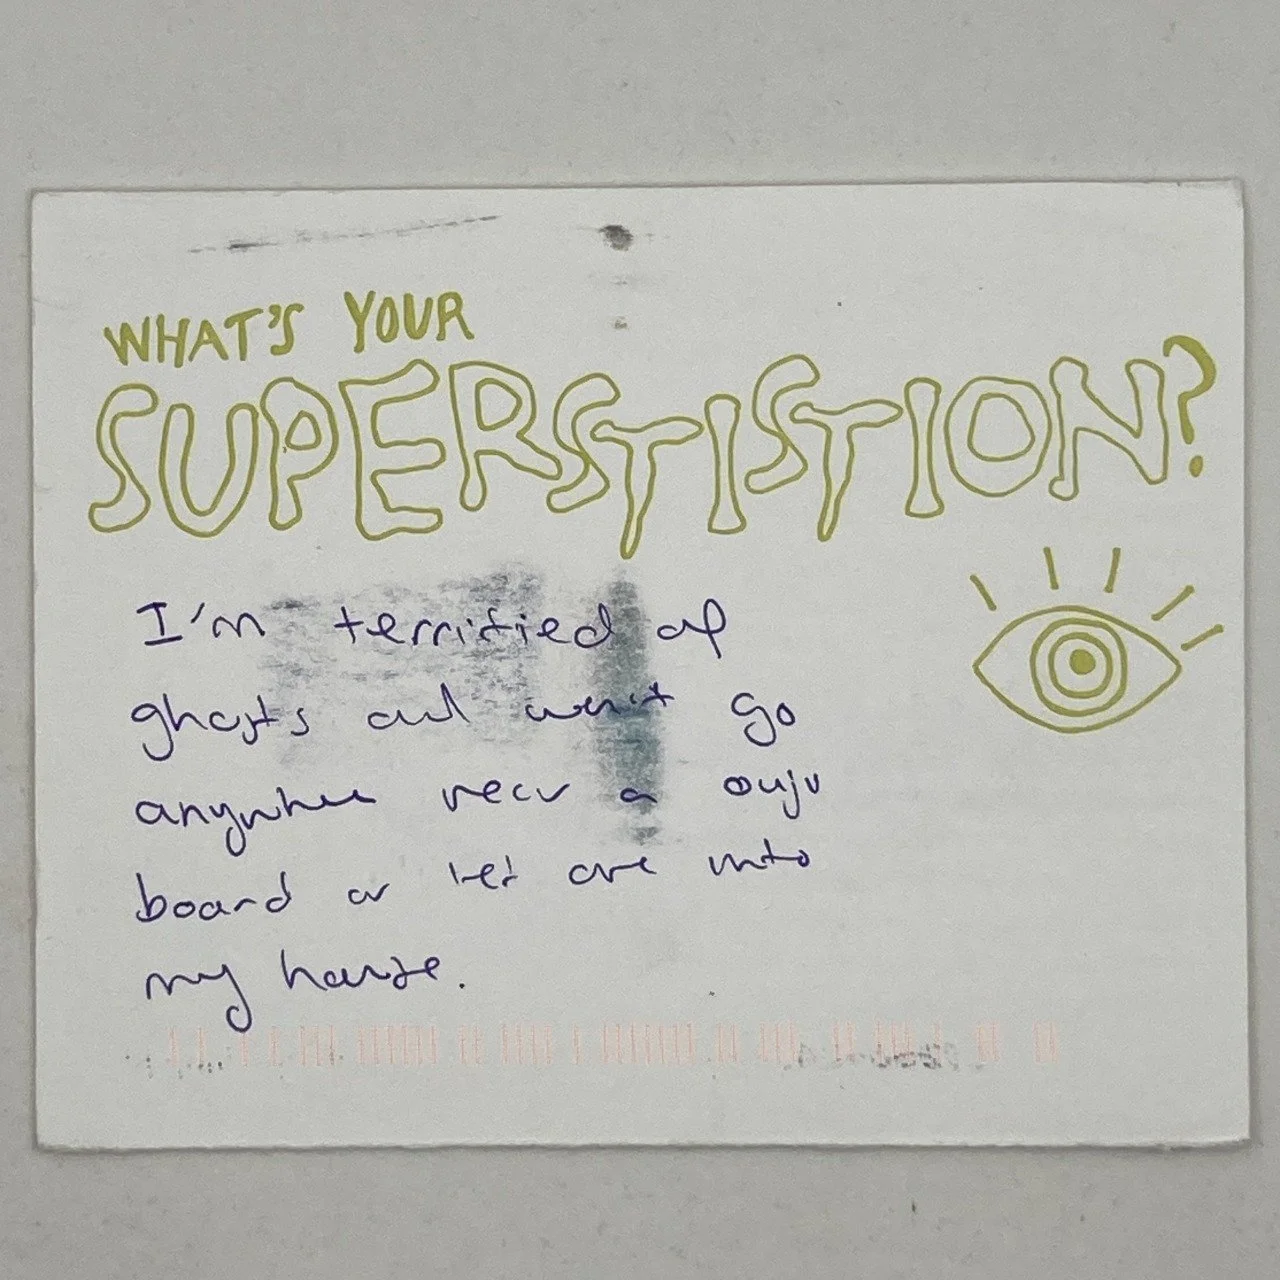 WHAT'S YOUR
SUPERSTISTION?
I'm terrified of
ghosts and won't go
anywhere near a ouju
board or let one into
my house.